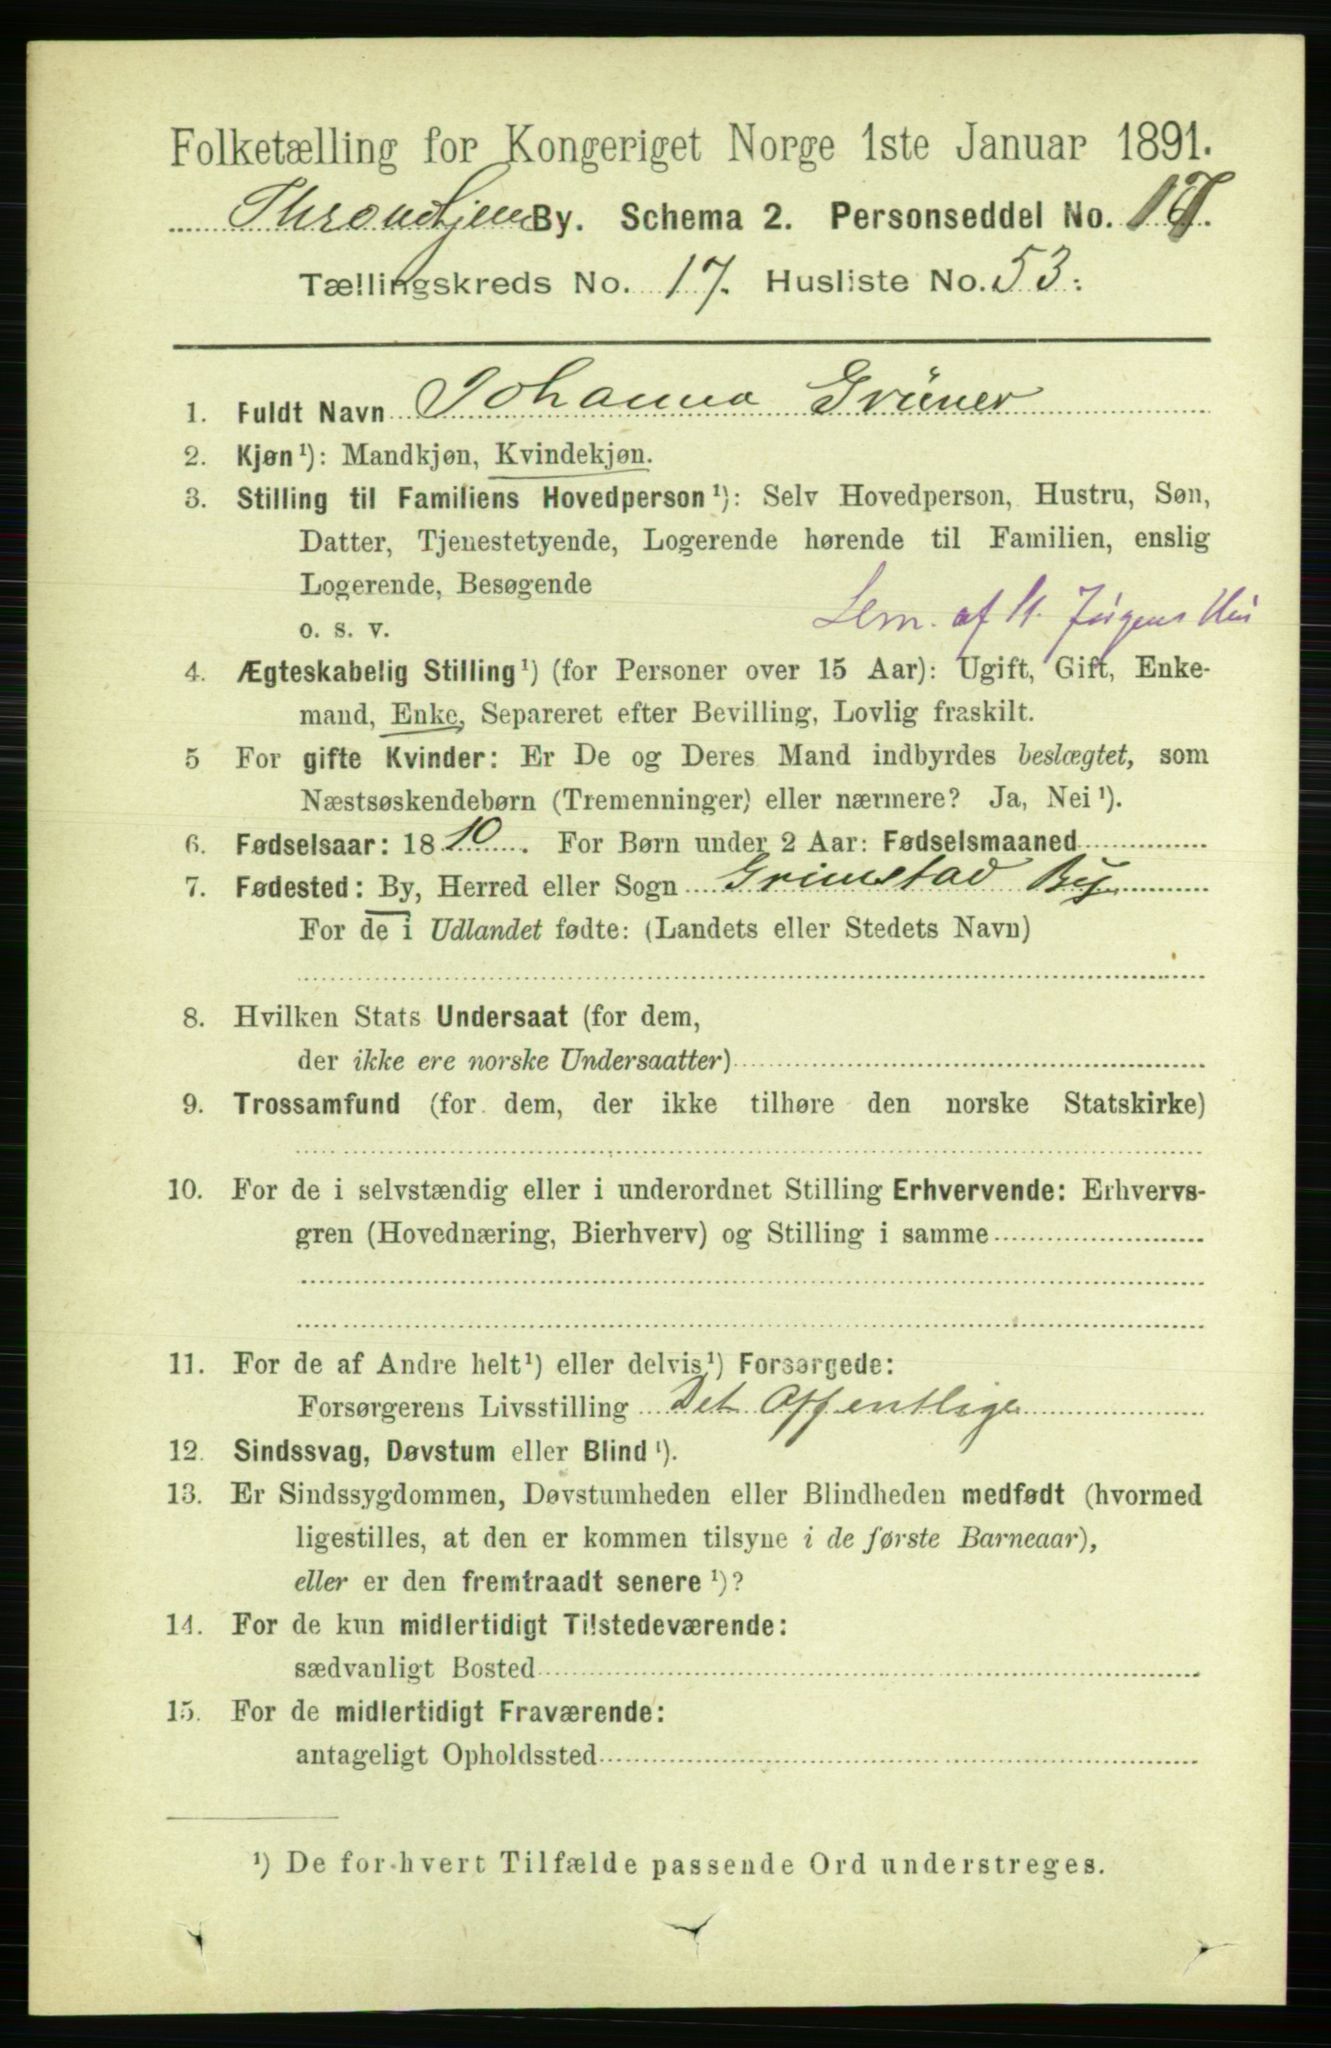 Folketælling for Kongeriget Norge 1ste Januar 1891.
Throndhjem By. Schema 2. Personseddel No. 17.
Tællingskreds No. 17. Husliste No. 53.
1. Fuldt Navn Johanna Grüner
2. Kjøn¹): Mandkjøn, Kvindekjøn.
3. Stilling til Familiens Hovedperson¹): Selv Hovedperson, Hustru, Søn,
Datter, Tjenestetyende, Logerende hørende til Familien, enslig
Logerende, Besøgende
Lem. af St. Jørgens Hus
o. s. v.
4. Ægteskabelig Stilling¹) (for Personer over 15 Aar): Ugift, Gift, Enke-
mand, Enke, Separeret efter Bevilling, Lovlig fraskilt.
5 For gifte Kvinder: Er De og Deres Mand indbyrdes beslægtet, som
Næstsøskendebørn (Tremenninger) eller nærmere? Ja, Nei¹).
6. Fødselsaar: 1810. For Børn under 2 Aar: Fødselsmaaned
7. Fødested: By, Herred eller Sogn Grimstad By
For de i Udlandet fødte: (Landets eller Stedets Navn)
8. Hvilken Stats Undersaat (for dem,
der ikke ere norske Undersaatter)
9. Trossamfund (for dem, der ikke tilhøre den norske Statskirke)
10. For de i selvstændig eller i underordnet Stilling Erhvervende: Erhvervs-
gren (Hovednæring, Bierhverv) og Stilling i samme
11. For de af Andre helt¹) eller delvis¹) Forsørgede:
Forsørgerens Livsstilling Det Offentlige
12. Sindssvag, Døvstum eller Blind¹).
13. Er Sindssygdommen, Døvstumheden eller Blindheden medfødt (hvormed
ligestilles, at den er kommen tilsyne i de første Barneaar),
eller er den fremtraadt senere¹)?
14. For de kun midlertidigt Tilstedeværende:
sædvanligt Bosted
15. For de midlertidigt Fraværende:
antageligt Opholdssted
¹) De for hvert Tilfælde passende Ord understreges.